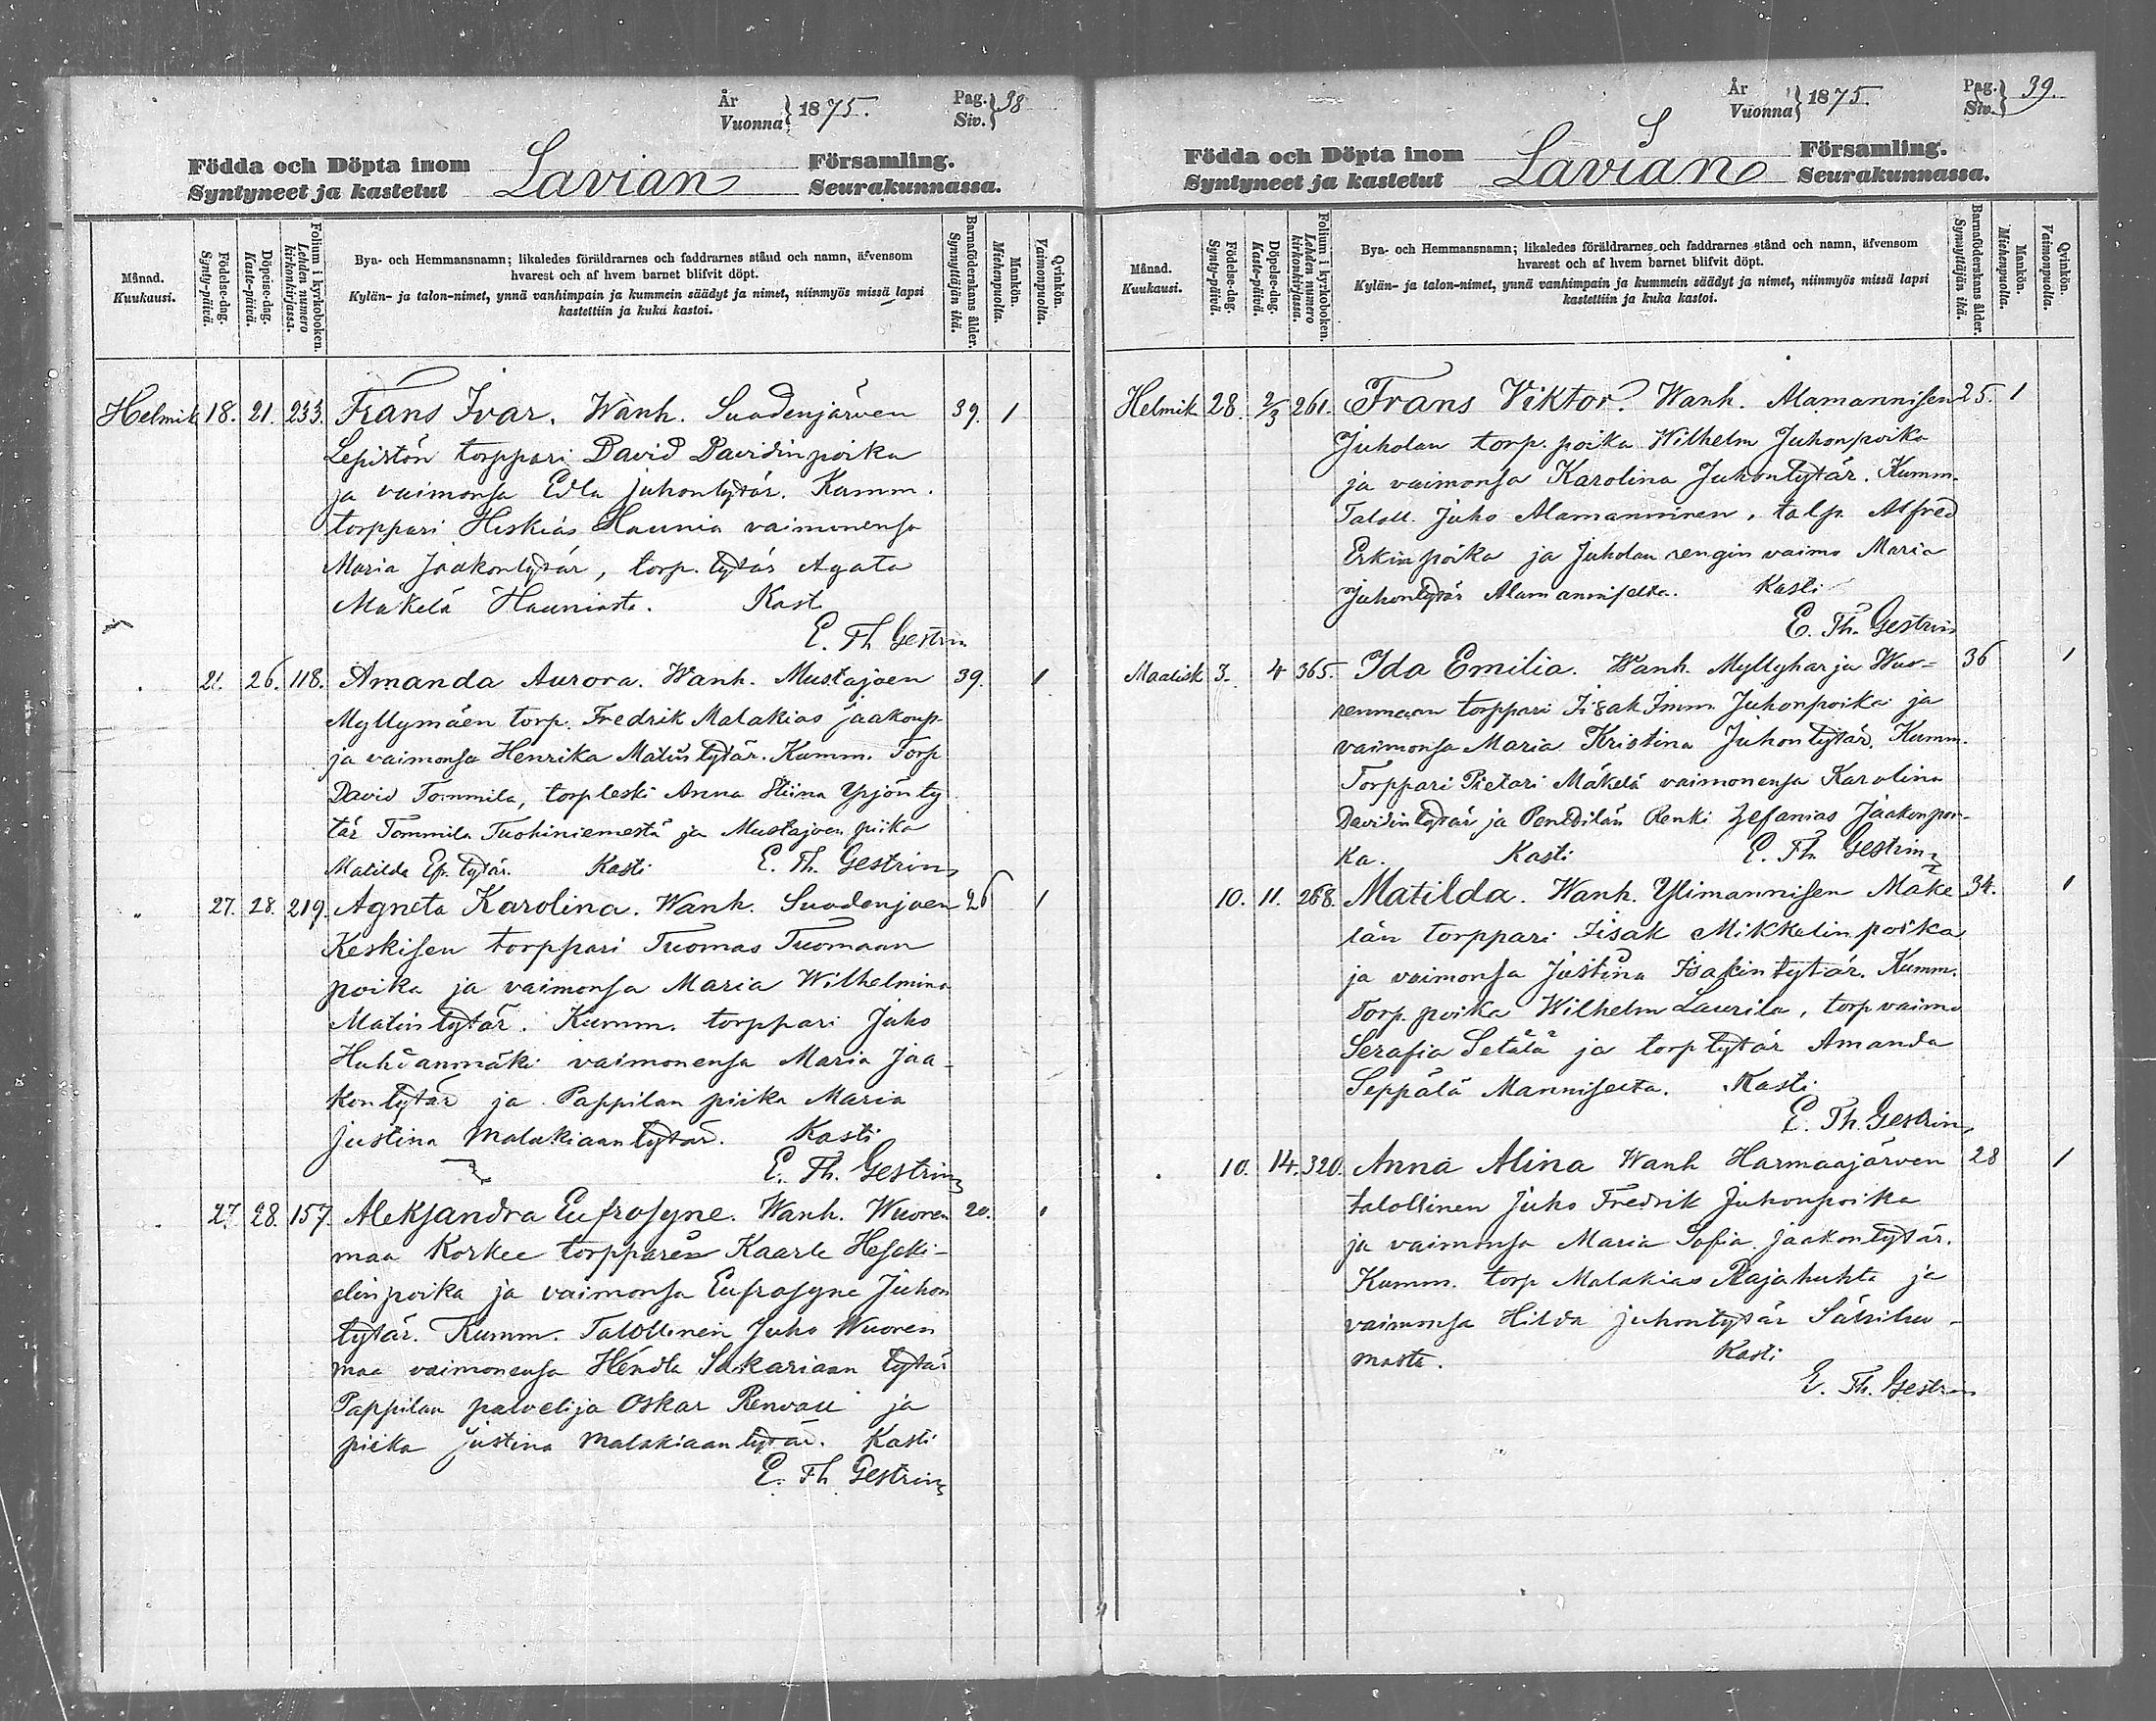 År Vuonna } 1875. Pag. Siv. } 38
Födda och Döpta inom Lavian Församling.
Syntyneet ja kastetut Seurakunnassa.
Månad. Kuukausi.
Födelse-dag. Synty-päivä.
Döpelse-dag. Kaste-päivä.
Folium i kyrkoboken. Lehden numero kirkonkirjassa.
Bya- och Hemmansnamn; likaledes föräldrarnes och faddrarnes stånd och namn, äfvensom
hvarest och af hvem barnet blifvit döpt.
Kylän- ja talon-nimet, ynnä vanhimpain ja kummein säädyt ja nimet, niinmyös missä lapsi
kastettiin ja kuka kastoi.
Barnaföderskans ålder. Synnyttäjän ikä.
Mankön. Miehenpuolta.
Qvinkön. Vaimonpuolta.
Helmik 18. 21. 233. Frans Ivar. Wanh. Suodenjärven 39. 1
Lepistön torppari David Davidinpoika
ja vaimonsa Edla Juhontytär. Kumm.
torppari Heskias Haunia vaimonensa
Maria Jaakontytär, torp. tytär Agata
Makelä Hauniasta. Kast
E. Th Gestrin
21. 26. 118. Amanda Aurora. Wanh. Mustajoen 39. 1
Myllymäen torp. Fredrik Malakias Jaakonp.
ja vaimonsa Henrika Matintytär. Kumm. Torp
David Tommila, torpleski Anna Stiina Yrjönty
tär Tommila Tuohiniemestä ja Mustajoen piika
Matilda Efr. tytär. Kasti E. Th. Gestrin
" 27. 28. 219. Agneta Karolina. Wanh. Suodenjoen 26 1
Keskisen torppari Tuomas Tuomaan
poika ja vaimonsa Maria Wilhelmina
Matintytär. Kumm. torppari Juho
Huhdanmäki vaimonensa Maria Jaa-
kontytär ja Pappilan piika Maria
Justina Malakiaantytär. Kasti
E. Th. Gestrin
27. 28. 157 Aleksandra Eufrosyne. Wanh. Wuoren 20. 1
maa Korkee torpparin Kaarle Heseki-
elinpoika ja vaimonsa Eufrosyne Juhon
tytär. Kumm. Talollinen Juho Wuoren
maa vaimonensa Hendla Sakariaan tytär
Pappilan palvelija Oskar Renvall ja
piika Justina Malakiaantytär. Kasti
E. Th Gestrin
År Vuonna } 1875. Pag. Siv. } 39.
Födda och Döpta inom Lavian Församling.
Syntyneet ja kastetut Seurakunnassa.
Månad. Kuukausi.
Födelse-dag. Synty-päivä.
Döpelse-dag. Kaste-päivä.
Folium i kyrkoboken. Lehden numero kirkonkirjassa.
Bya- och Hemmansnamn; likaledes föräldrarnes och faddrarnes stånd och namn, äfvensom
hvarest och af hvem barnet blifvit döpt.
Kylän- ja talon-nimet, ynnä vanhimpain ja kummein säädyt ja nimet, niinmyös missä lapsi
kastettiin ja kuka kastoi.
Barnaföderskans ålder. Synnyttäjän ikä.
Mankön. Miehenpuolta.
Qvinkön. Vaimonpuolta.
Helmik 28. 2/3 261. Frans Viktor. Wanh. Alamannisen 25. 1
Juholan torp. poika Wilhelm Juhonpoika
ja vaimonsa Karolina Juhontytär. Kumm.
Taloll. Juho Alamanninen, talp. Alfred
Erkinpoika ja Juholan rengin vaimo Maria
Juhontytär Alamannisesta. Kasti
E. Th. Gestrin
Maalisk 3. 4 365. Ida Emilia. Wanh. Myllyharju Wuo- 36 1
renmaan torppari Iisak Imm. Juhonpoika ja
vaimonsa Maria Kristina Juhontytär. Kumm.
Torppari Pietari Mäkelä vaimonensa Karolina
Davidintytär ja Penttilän Renki Zefanias Jaakonpoi-
ka. Kasti E. Th Gestrin
10. 11. 268. Matilda. Wanh. Ylimannisen Mäke 34. 1
län torppari Iisak Mikkelinpoika
ja vaimonsa Justina Isakintytär. Kumm.
Torp. poika Wilhelm Laurila, torp vaimo
Serafia Setälä ja torp tytär Amanda
Seppälä Mannisesta. Kasti
E. Th. Gestrin
10. 14. 320. Anna Alina Wanh Harmaajärven 28 1
talollinen Juho Fredrik Juhonpoika
ja vaimonsa Maria Sofia Jaakontytär.
Kumm. torp Malakias Rajahuhta ja
vaimonsa Hilda Juhontytär
Kasti
E. Th. Gestrin